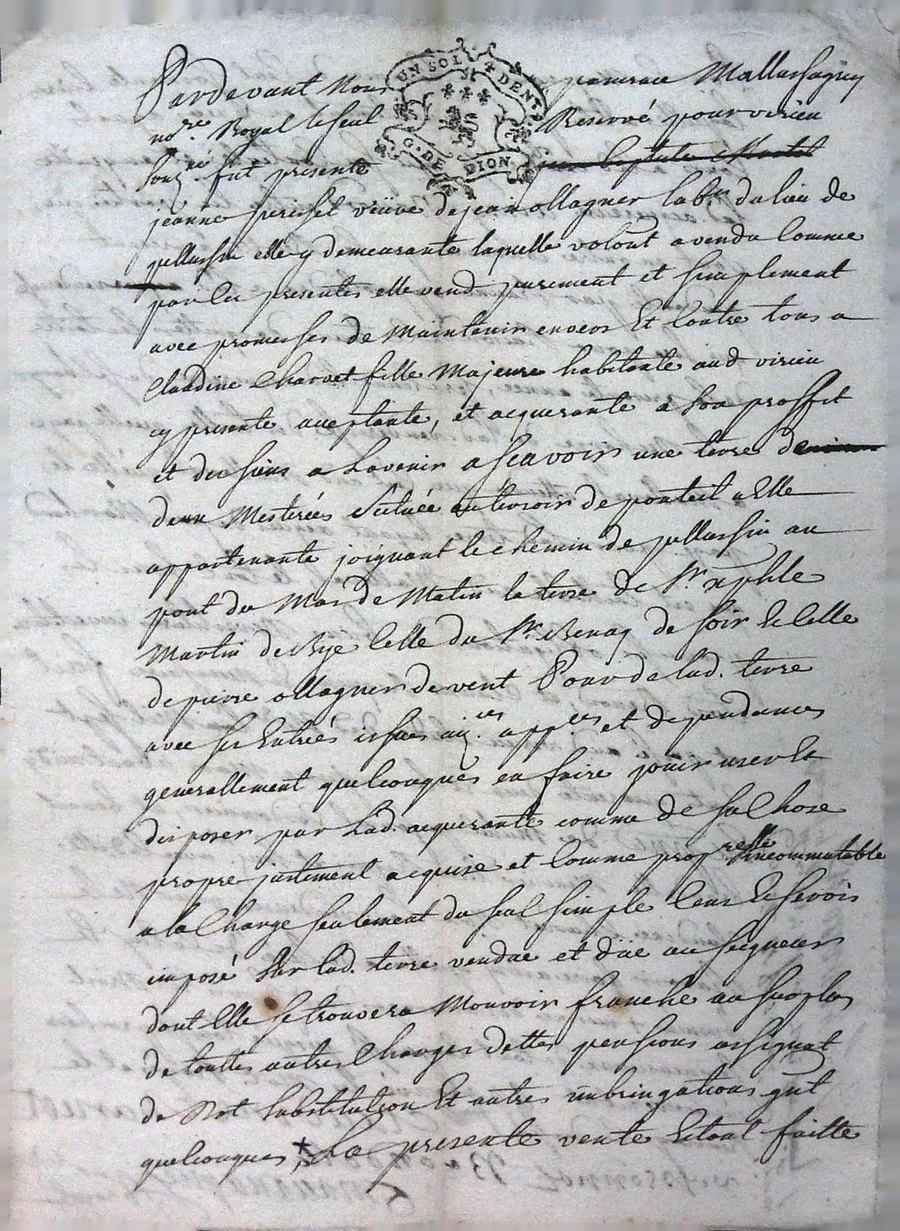 UN SOL 4 DENI
G. DE DION
Pardevant Nous pancrace Mallassagny
no.re Royal le seul Reservé pour virieu
souz.né fut presente
jeanne perichel veüve de jean ollagner lab.r du lieu de
pellussin elle y demeurante laquelle volont a vendu comme
par les presentes elle vend purement et simplement
avec promesses de Maintenir envers Et Contre tous a
Claudine Charvet fille Majeure habitante aud virieu
cy presente acceptante, et acquerante a son proffit
et des siens a Lavenir a scavoir une terre de
deux Mesterées scituée au terroir de ponteil a Elle
appartenante joignant le chemin de pellussin au
pont du Mas de Matin la terre de Sr xphle
Martin de Bye celle du Sr Benay de soir Et Celle
de pierre ollagner de vent Pour de lad. terre
avec ses Entrées issues aiz.ces app.ces et dependances
generallement quelconques en faire jouir user Et
disposer par Lad. acquerante comme de sa Chose
propre justement acquise et Comme propr.resse incommutable
a la Charge seulement du seul simple Cens Et servis
imposé Sur lad. terre vendue et düe au seigneur
dont Elle se trouvera Mouvoir franche au surplus
de touttes autres Charges dettes pensions assignat
de Dot substitution Et autres imbringations gñt
quelconques, + La presente vente Etant faitte